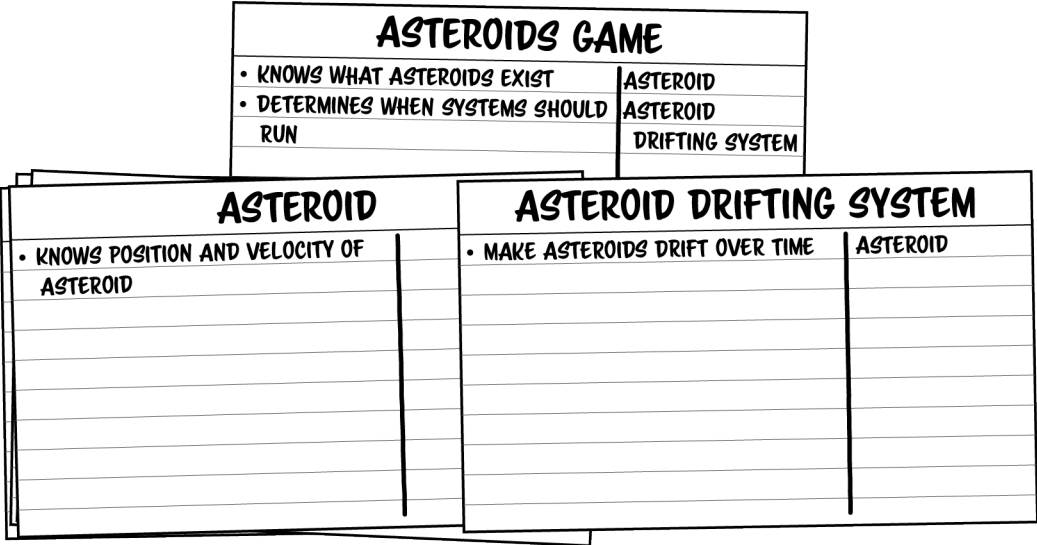 ASTEROIDS GAME
• KNOWS WHAT ASTEROIDS EXIST
ASTEROID
• DETERMINES WHEN SYSTEMS SHOULD
RUN
ASTEROID
DRIFTING SYSTEM
ASTEROID
• KNOWS POSITION AND VELOCITY OF
ASTEROID
ASTEROID DRIFTING SYSTEM
• MAKE ASTEROIDS DRIFT OVER TIME
ASTEROID